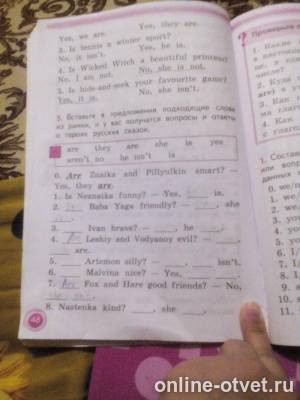 Yes, we are. Yes, they are.
3. Is tennis a winter sport?
No, it isn't. Yes, he is.
4. Is Wicked Witch a beautiful princess?
No, I am not. No, she is not.
5. Is hide-and-seek your favourite game?
Yes, it is. No, she isn't.
3. Вставьте в предложения подходящие слова
из рамки, и у вас получатся вопросы и ответы
о героях русских сказок.
are they are she is yes
aren't no he isn't is
0. Are Znaika and Pillyulkin smart? —
Yes, they are.
1. Is Neznaika funny? — Yes, ___ is.
2. ___ Baba Yaga friendly? — ___, she
3. ___ Ivan brave? — ___, he ___.
4. ___ Leshiy and Vodyanoy evil? — ___,
___ are.
5. ___ Artemon silly? — ___, ___ isn't.
6. ___ Malvina nice? — Yes, ___ ___.
7. Are Fox and Hare good friends? — No,
8. ___ Nastenka kind? ___, she ___.
48
Проверьте
1. Какие
2. Куда
are) в
3. Как
4. Как
1. Составьте
или вопро
данных
online-otvet.ru